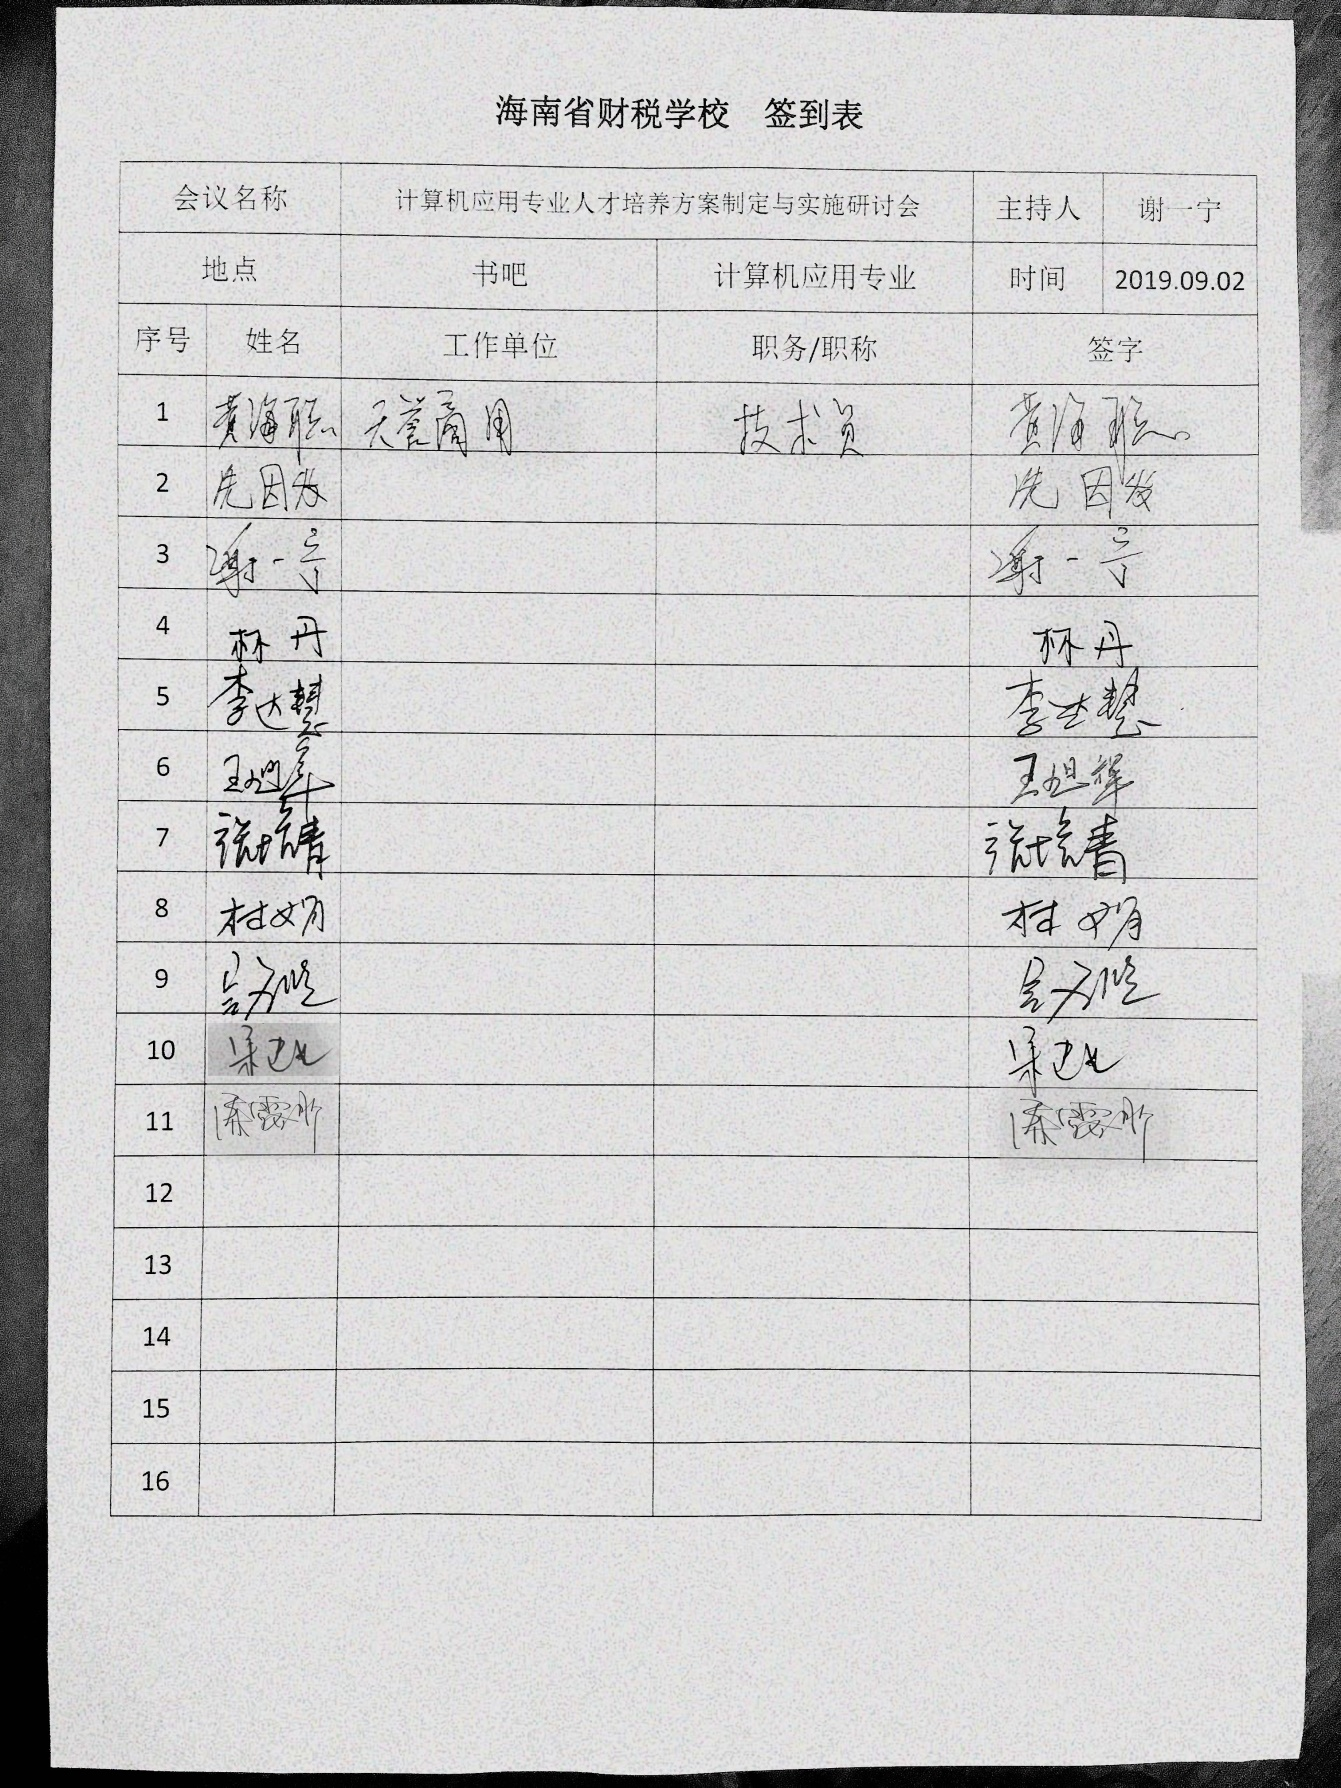 海南省财税学校 签到表
会议名称 计算机应用专业人才培养方案制定与实施研讨会 主持人 谢一宁
地点 书吧 计算机应用专业 时间 2019.09.02
序号 姓名 工作单位 职务/职称 签字
1 黄海聪 天誉商用 技术员 黄海聪
2 冼因发 冼因发
3 谢一宁 谢一宁
4 林丹 林丹
5 李达慧 李达慧
6 王旭辉 王旭辉
7 张培青 张培青
8 杜娟 杜娟
9
10
11
12
13
14
15
16